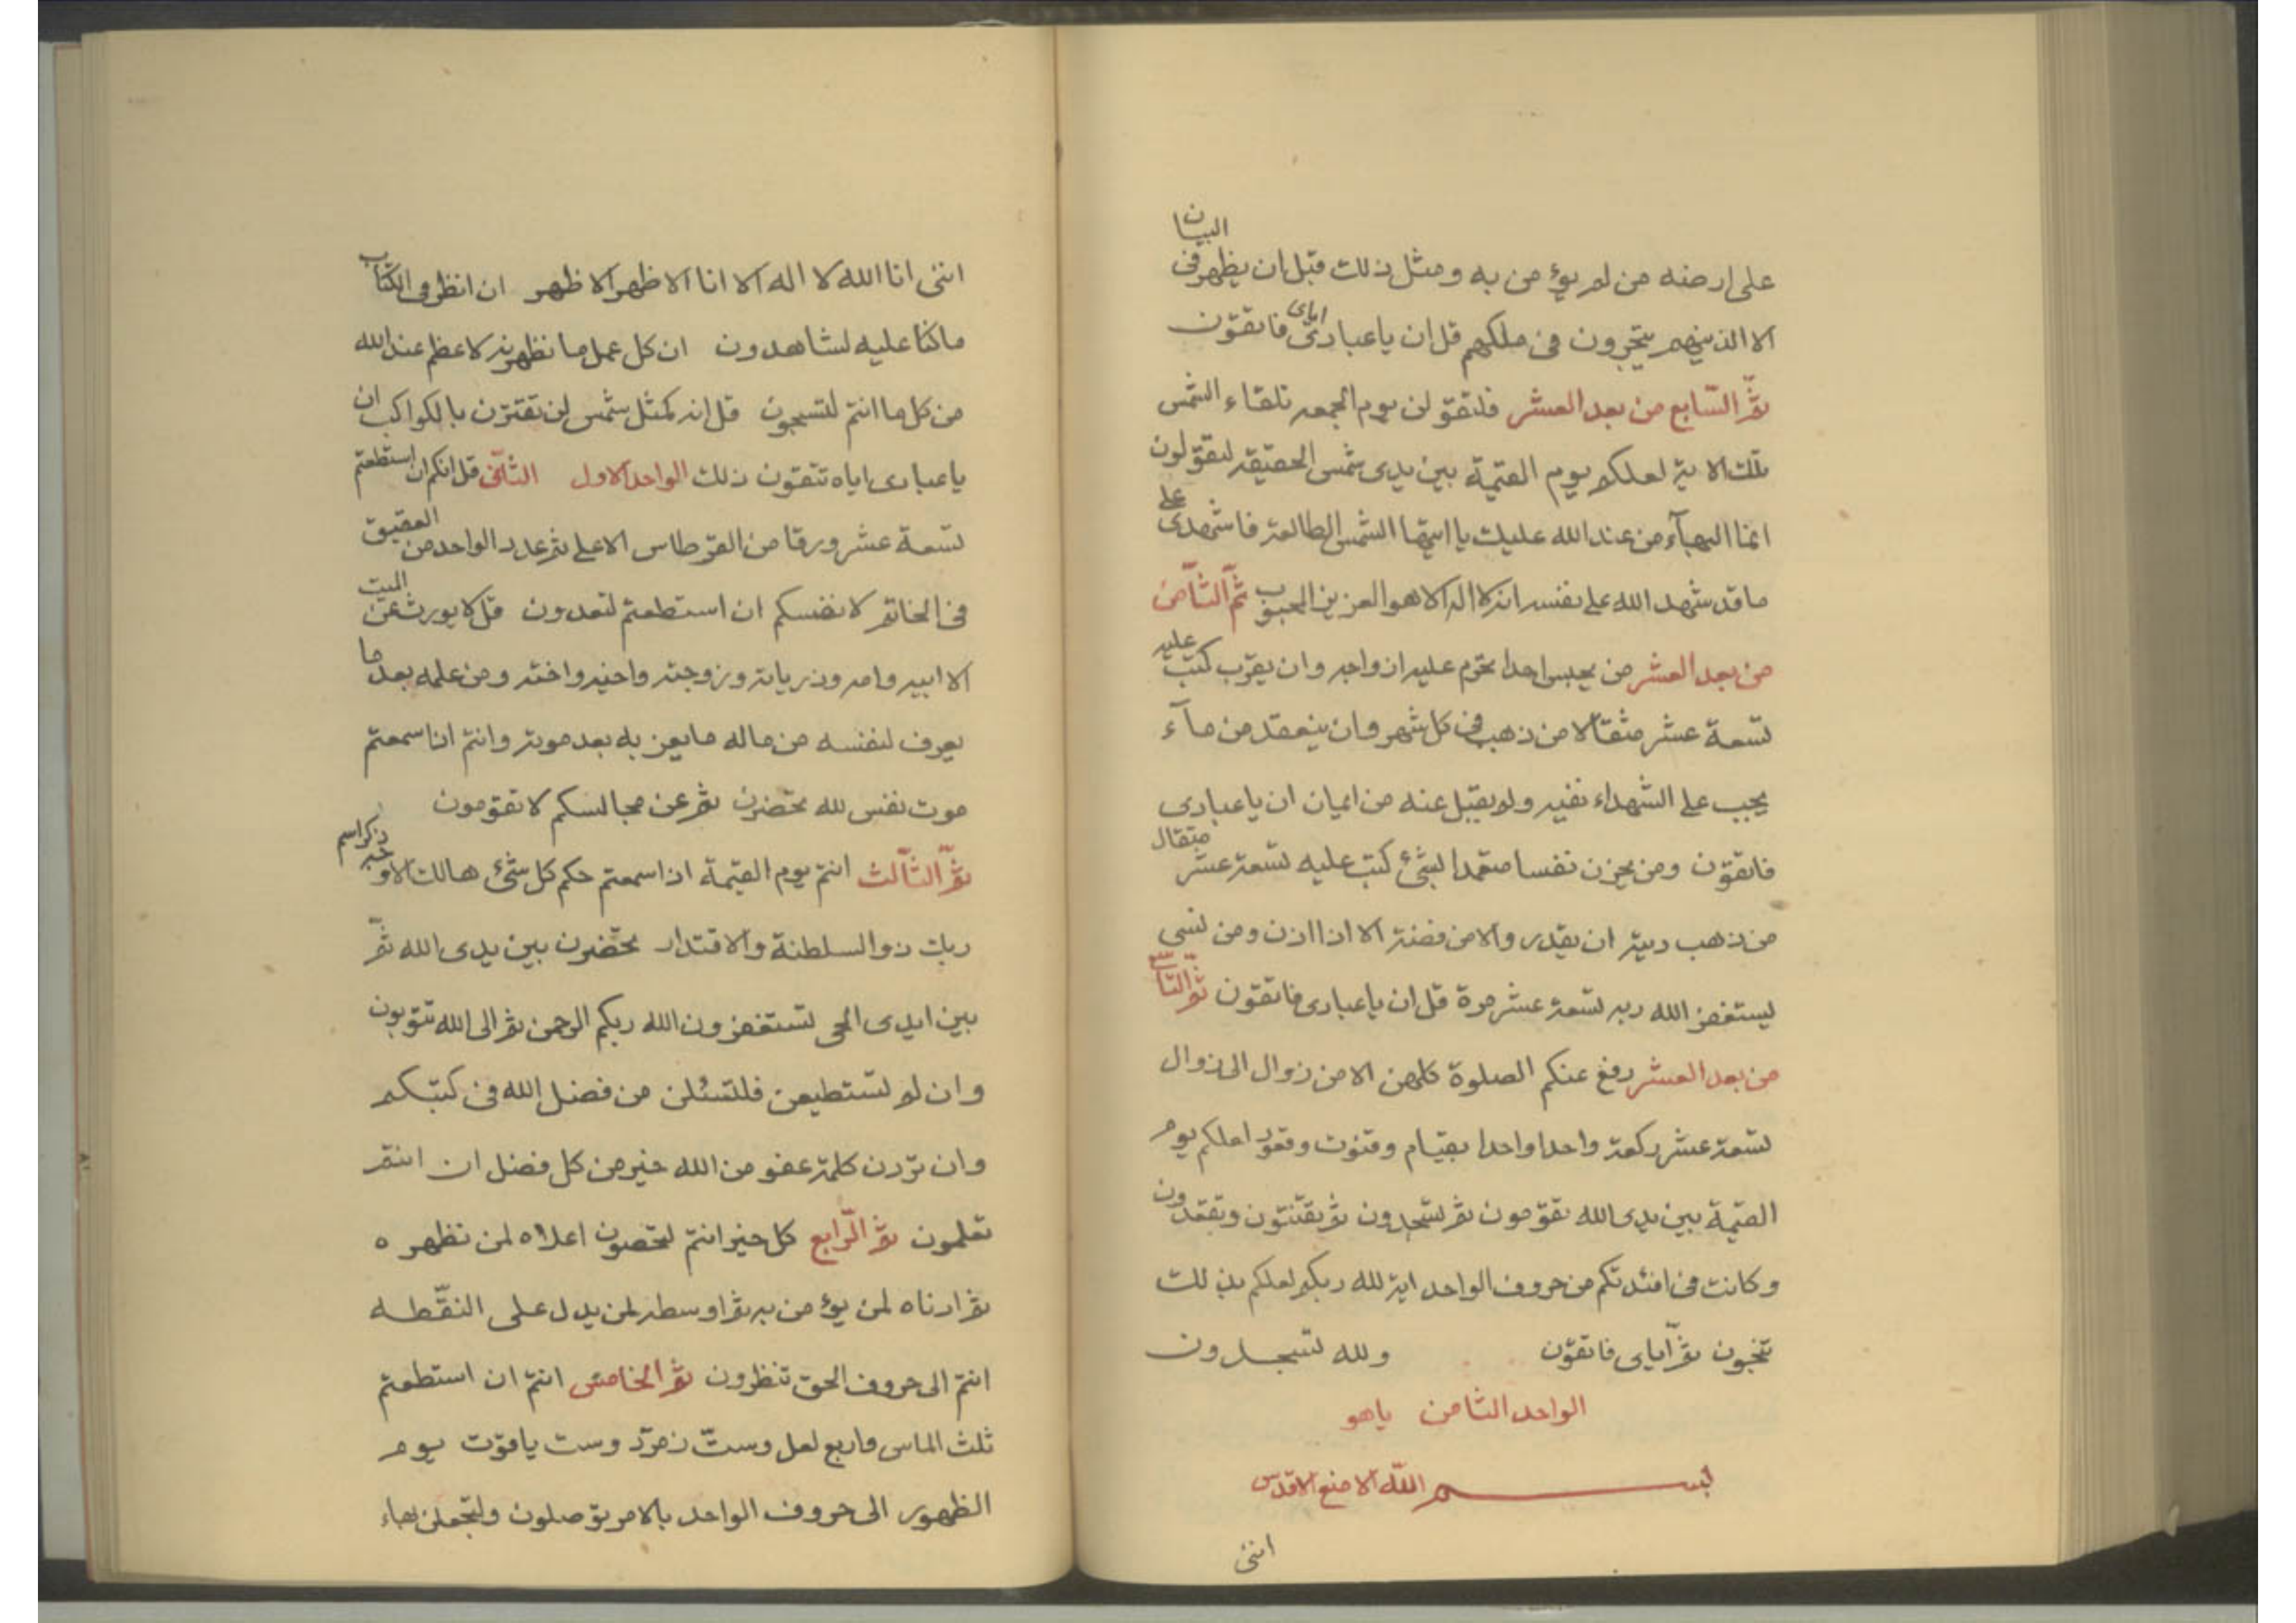 على ارضه من لم يؤمن به ومثل ذلك قبل ان يظهر في البيان
الا الذينهم يتجرون في ملككم قل ان يا عبادي اياي فاتقون
ثم السابع من بعد العشر فلتقولن يوم الجمعه تلقاء الشمس
تلك الاية لعلكم يوم القيمة بين يدى شمس الحقيقه لتقولون
انما البهآء من عند الله عليك يا ايتها الشمس الطالعة فاشهدى على
ما قد شهد الله على نفسه انه لا اله الا هو العزيز المحبوب ثم الثامن
من بعد العشر من يحبس احدا يحرم عليه ازواجه وان يقرب كتب عليه
تسعة عشر مثقالا من ذهب في كل شهر وان ينعقد من مآء
يجب على الشهداء نفيه ولا يقبل عنه من ايمان ان يا عبادى
فاتقون ومن يحزن نفسا متعمدا لشئ كتب عليه تسعة عشر مثقال
من ذهب دية ان يقدر والا من فضة الا اذا اذن ومن نسى
ليستغفر الله ربه تسعة عشر مرة قل ان يا عبادى فاتقون ثم التاسع
من بعد العشر رفع عنكم الصلوة كلهن الا من زوال الى زوال
تسعة عشر ركعة واحدا واحدا بقيام وقنوت وقعود لعلكم يوم
القيمة بين يدى الله تقومون ثم تسجدون ثم تقنتون وتقعدون
وكانت في افئدتكم من حروف الواحد اية لله ربكم لعلكم بذلك
تنجون ثم اياى فاتقون ولله تسجدون
الواحد الثامن ياهو
بسم الله الامنع الاقدس
اننى
اننى انا الله لا اله الا انا الاظهر الاظهر ان انظر في الكتاب
ما كنا عليه لشاهدون ان كل عمل ما نظهرنه لاعظم عند الله
من كل ما انتم لتسبحون قل انه كمثل شمس لن تقترن بالكواكب ان
يا عبادى اياه تتقون ذلك الواحد الاول الثانى قل انكم ان استطعتم
تسعة عشر ورقا من القرطاس الاعلى ثم عدد الواحد من العقيق
في الخاتم لانفسكم ان استطعتم لتعدون قل لا يورث عن الميت
الا ابيه وامه وذرياته وزوجته واخيه واخته ومن علمه بعد ما
يعرف لنفسه من ماله ما يعز به بعد موته وانتم اذا سمعتم
موت نفس لله تحضرن ثم عن مجالسكم لا تقومون
ثم الثالث انتم يوم القيمة اذا سمعتم حكم كل شئ هالك الا وجه ذكر اسم
ربك ذو السلطنة والاقتدار تحضرن بين يدى الله ثم
بين ايدى الحى تستغفرون الله ربكم الرحمن ثم الى الله تتوبون
وان لم تستطيعن فلتسئلن من فضل الله في كتبكم
وان تردن كلمة عفو من الله خير من كل فضل ان انتم
تعلمون ثم الرابع كل خير انتم لتحصون اعلاه لمن نظهره
ثم ادناه لمن يؤمن به ثم اوسطه لمن يدل على النقطه
انتم الى حروف الحق تنظرون ثم الخامس انتم ان استطعتم
ثلث الماس واربع لعل وست زمرد وست ياقوت يوم
الظهور الى حروف الواحد بالامر توصلون ولتجعلن بهاء